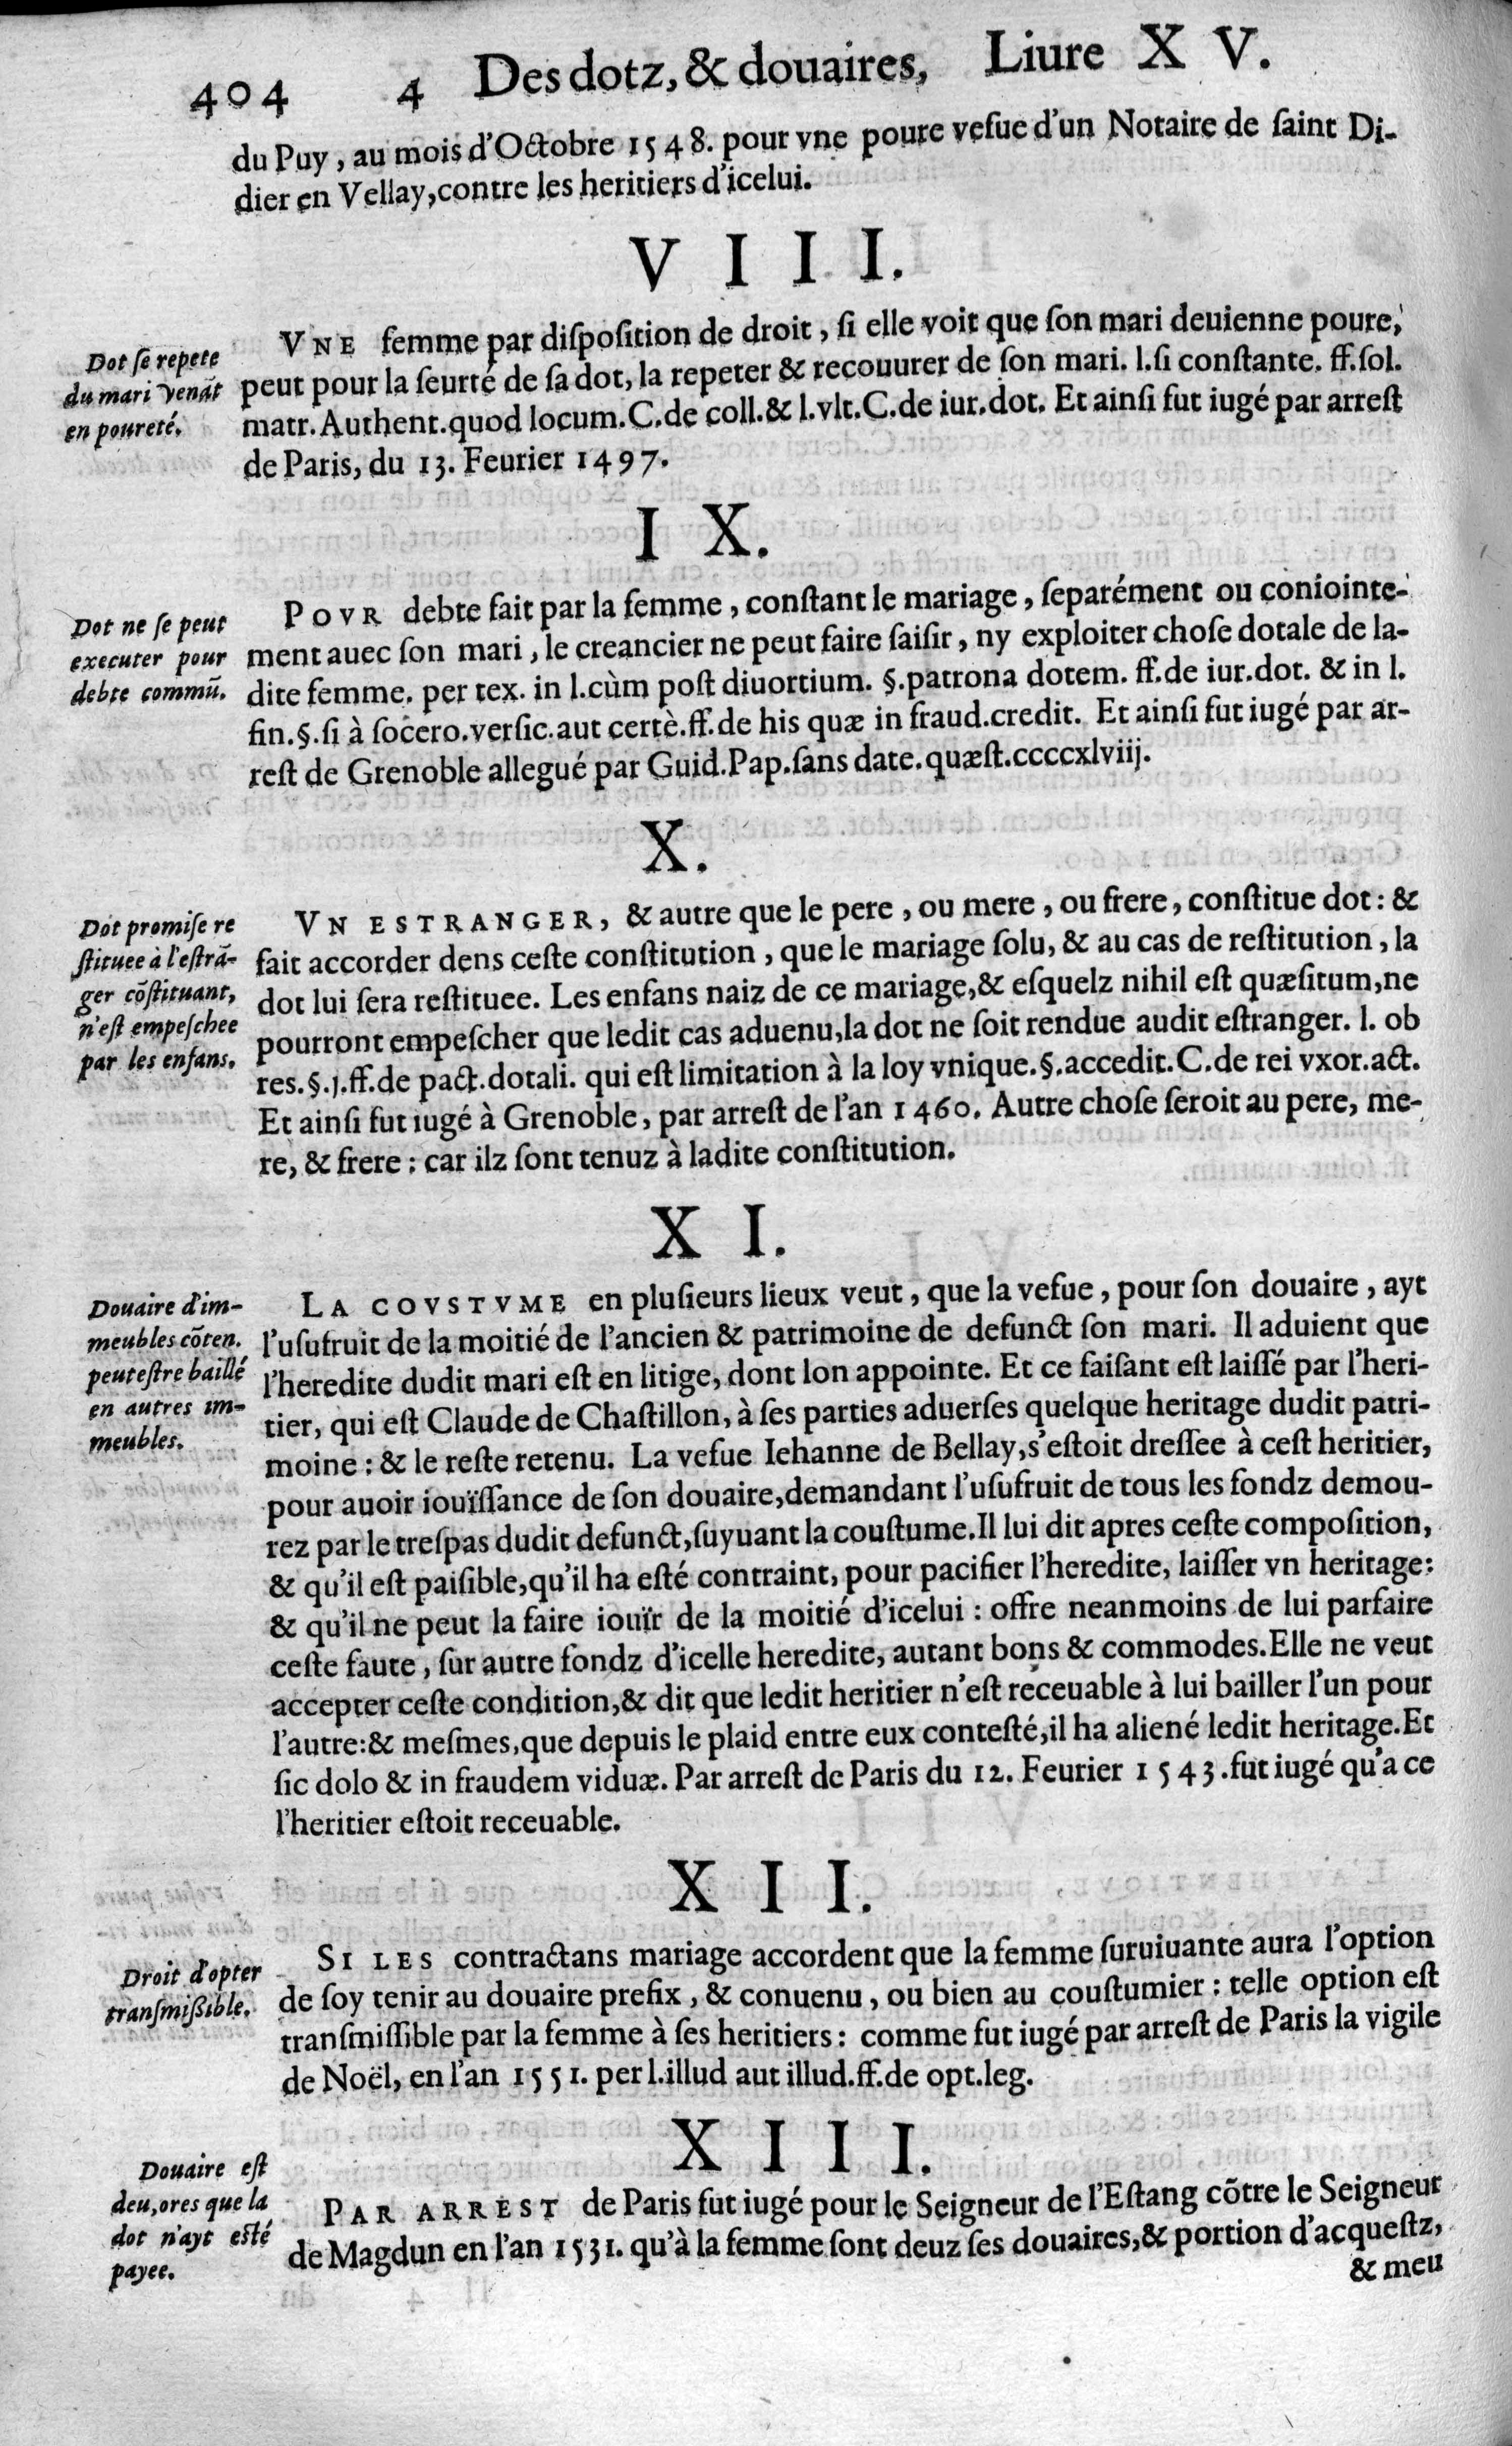 404 4 Des dotz, & douaires, Liure X V.
du Puy, au mois d'Octobre 1548. pour vne poure vefue d'un Notaire de saint Di-
dier en Vellay, contre les heritiers d'icelui.
V I I I.
Dot ſe repete
du mari venāt
en poureté.
VNE femme par diſpoſition de droit, ſi elle voit que ſon mari deuienne poure,
peut pour la ſeurté de ſa dot, la repeter & recouurer de ſon mari. l.ſi conſtante. ff.ſol.
matr.Authent.quod locum.C.de coll.& l.vlt.C.de iur.dot. Et ainſi fut iugé par arreſt
de Paris, du 13. Feurier 1497.
I X.
Dot ne ſe peut
executer pour
debte commū.
POVR debte fait par la femme, conſtant le mariage, ſeparément ou coniointe-
ment auec ſon mari, le creancier ne peut faire ſaiſir, ny exploiter choſe dotale de la-
dite femme. per tex. in l.cùm poſt diuortium. §.patrona dotem. ff.de iur.dot. & in l.
fin.§.ſi à ſocero.verſic.aut certè.ff.de his quæ in fraud.credit. Et ainſi fut iugé par ar-
reſt de Grenoble allegué par Guid.Pap.ſans date.quæſt.ccccxlviij.
X.
Dot promiſe re
ſtituee à l'eſtrā-
ger cōſtituant,
n'eſt empeſchee
par les enfans.
VN ESTRANGER, & autre que le pere, ou mere, ou frere, conſtitue dot: &
fait accorder dens ceſte conſtitution, que le mariage ſolu, & au cas de reſtitution, la
dot lui ſera reſtituee. Les enfans naiz de ce mariage,& eſquelz nihil eſt quæſitum,ne
pourront empeſcher que ledit cas aduenu,la dot ne ſoit rendue audit eſtranger. l. ob
res.§.j.ff.de pact.dotali. qui eſt limitation à la loy vnique.§.accedit.C.de rei vxor.act.
Et ainſi fut iugé à Grenoble, par arreſt de l'an 1460. Autre choſe ſeroit au pere, me-
re, & frere: car ilz ſont tenuz à ladite conſtitution.
X I.
Douaire d'im-
meubles cōten.
peut eſtre baillé
en autres im-
meubles.
LA COVSTVME en pluſieurs lieux veut, que la vefue, pour ſon douaire, ayt
l'uſufruit de la moitié de l'ancien & patrimoine de defunct ſon mari. Il aduient que
l'heredite dudit mari eſt en litige, dont lon appointe. Et ce faiſant eſt laiſſé par l'heri-
tier, qui eſt Claude de Chaſtillon, à ſes parties aduerſes quelque heritage dudit patri-
moine: & le reſte retenu. La vefue Iehanne de Bellay,s'eſtoit dreſſee à ceſt heritier,
pour auoir iouïſſance de ſon douaire,demandant l'uſufruit de tous les fondz demou-
rez par le treſpas dudit defunct,ſuyuant la couſtume.Il lui dit apres ceſte compoſition,
& qu'il eſt paiſible,qu'il ha eſté contraint, pour pacifier l'heredite, laiſſer vn heritage:
& qu'il ne peut la faire iouïr de la moitié d'icelui: offre neanmoins de lui parfaire
ceſte faute, ſur autre fondz d'icelle heredite, autant bons & commodes.Elle ne veut
accepter ceſte condition,& dit que ledit heritier n'eſt receuable à lui bailler l'un pour
l'autre:& meſmes,que depuis le plaid entre eux conteſté,il ha aliené ledit heritage.Et
ſic dolo & in fraudem viduæ. Par arreſt de Paris du 12. Feurier 1543.fut iugé qu'a ce
l'heritier eſtoit receuable.
X I I.
Droit d'opter
tranſmiſſible.
SI LES contractans mariage accordent que la femme ſuruiuante aura l'option
de ſoy tenir au douaire prefix, & conuenu, ou bien au couſtumier: telle option eſt
tranſmiſſible par la femme à ſes heritiers: comme fut iugé par arreſt de Paris la vigile
de Noël, en l'an 1551. per l.illud aut illud.ff.de opt.leg.
X I I I.
Douaire eſt
deu,ores que la
dot n'ayt eſté
payee.
PAR ARREST de Paris fut iugé pour le Seigneur de l'Eſtang cōtre le Seigneur
de Magdun en l'an 1531. qu'à la femme ſont deuz ſes douaires,& portion d'acqueſtz,
& meu